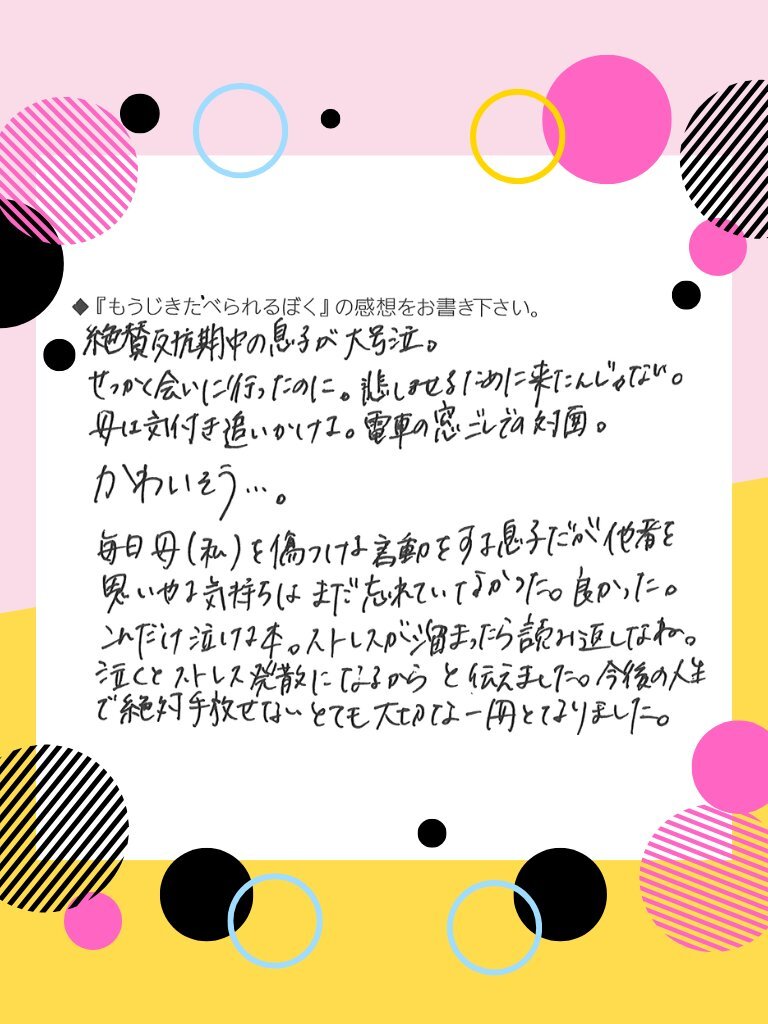 ◆『もうじきたべられるぼく』の感想をお書き下さい。
絶賛反抗期中の息子が大号泣。
せっかく会いに行ったのに。悲しませるために来たんじゃない。
母は気付き追いかける。電車の窓ごしでの対面。
かわいそう…。
毎日母(私)を傷つける言動をする息子だが他者を
思いやる気持ちはまだ忘れていてなかった。良かった。
これだけ泣ける本。ストレスが溜まったら読み返しなね。
泣くとストレス発散になるからと伝えました。今後の人生
で絶対手放せないとても大切な一冊となりました。